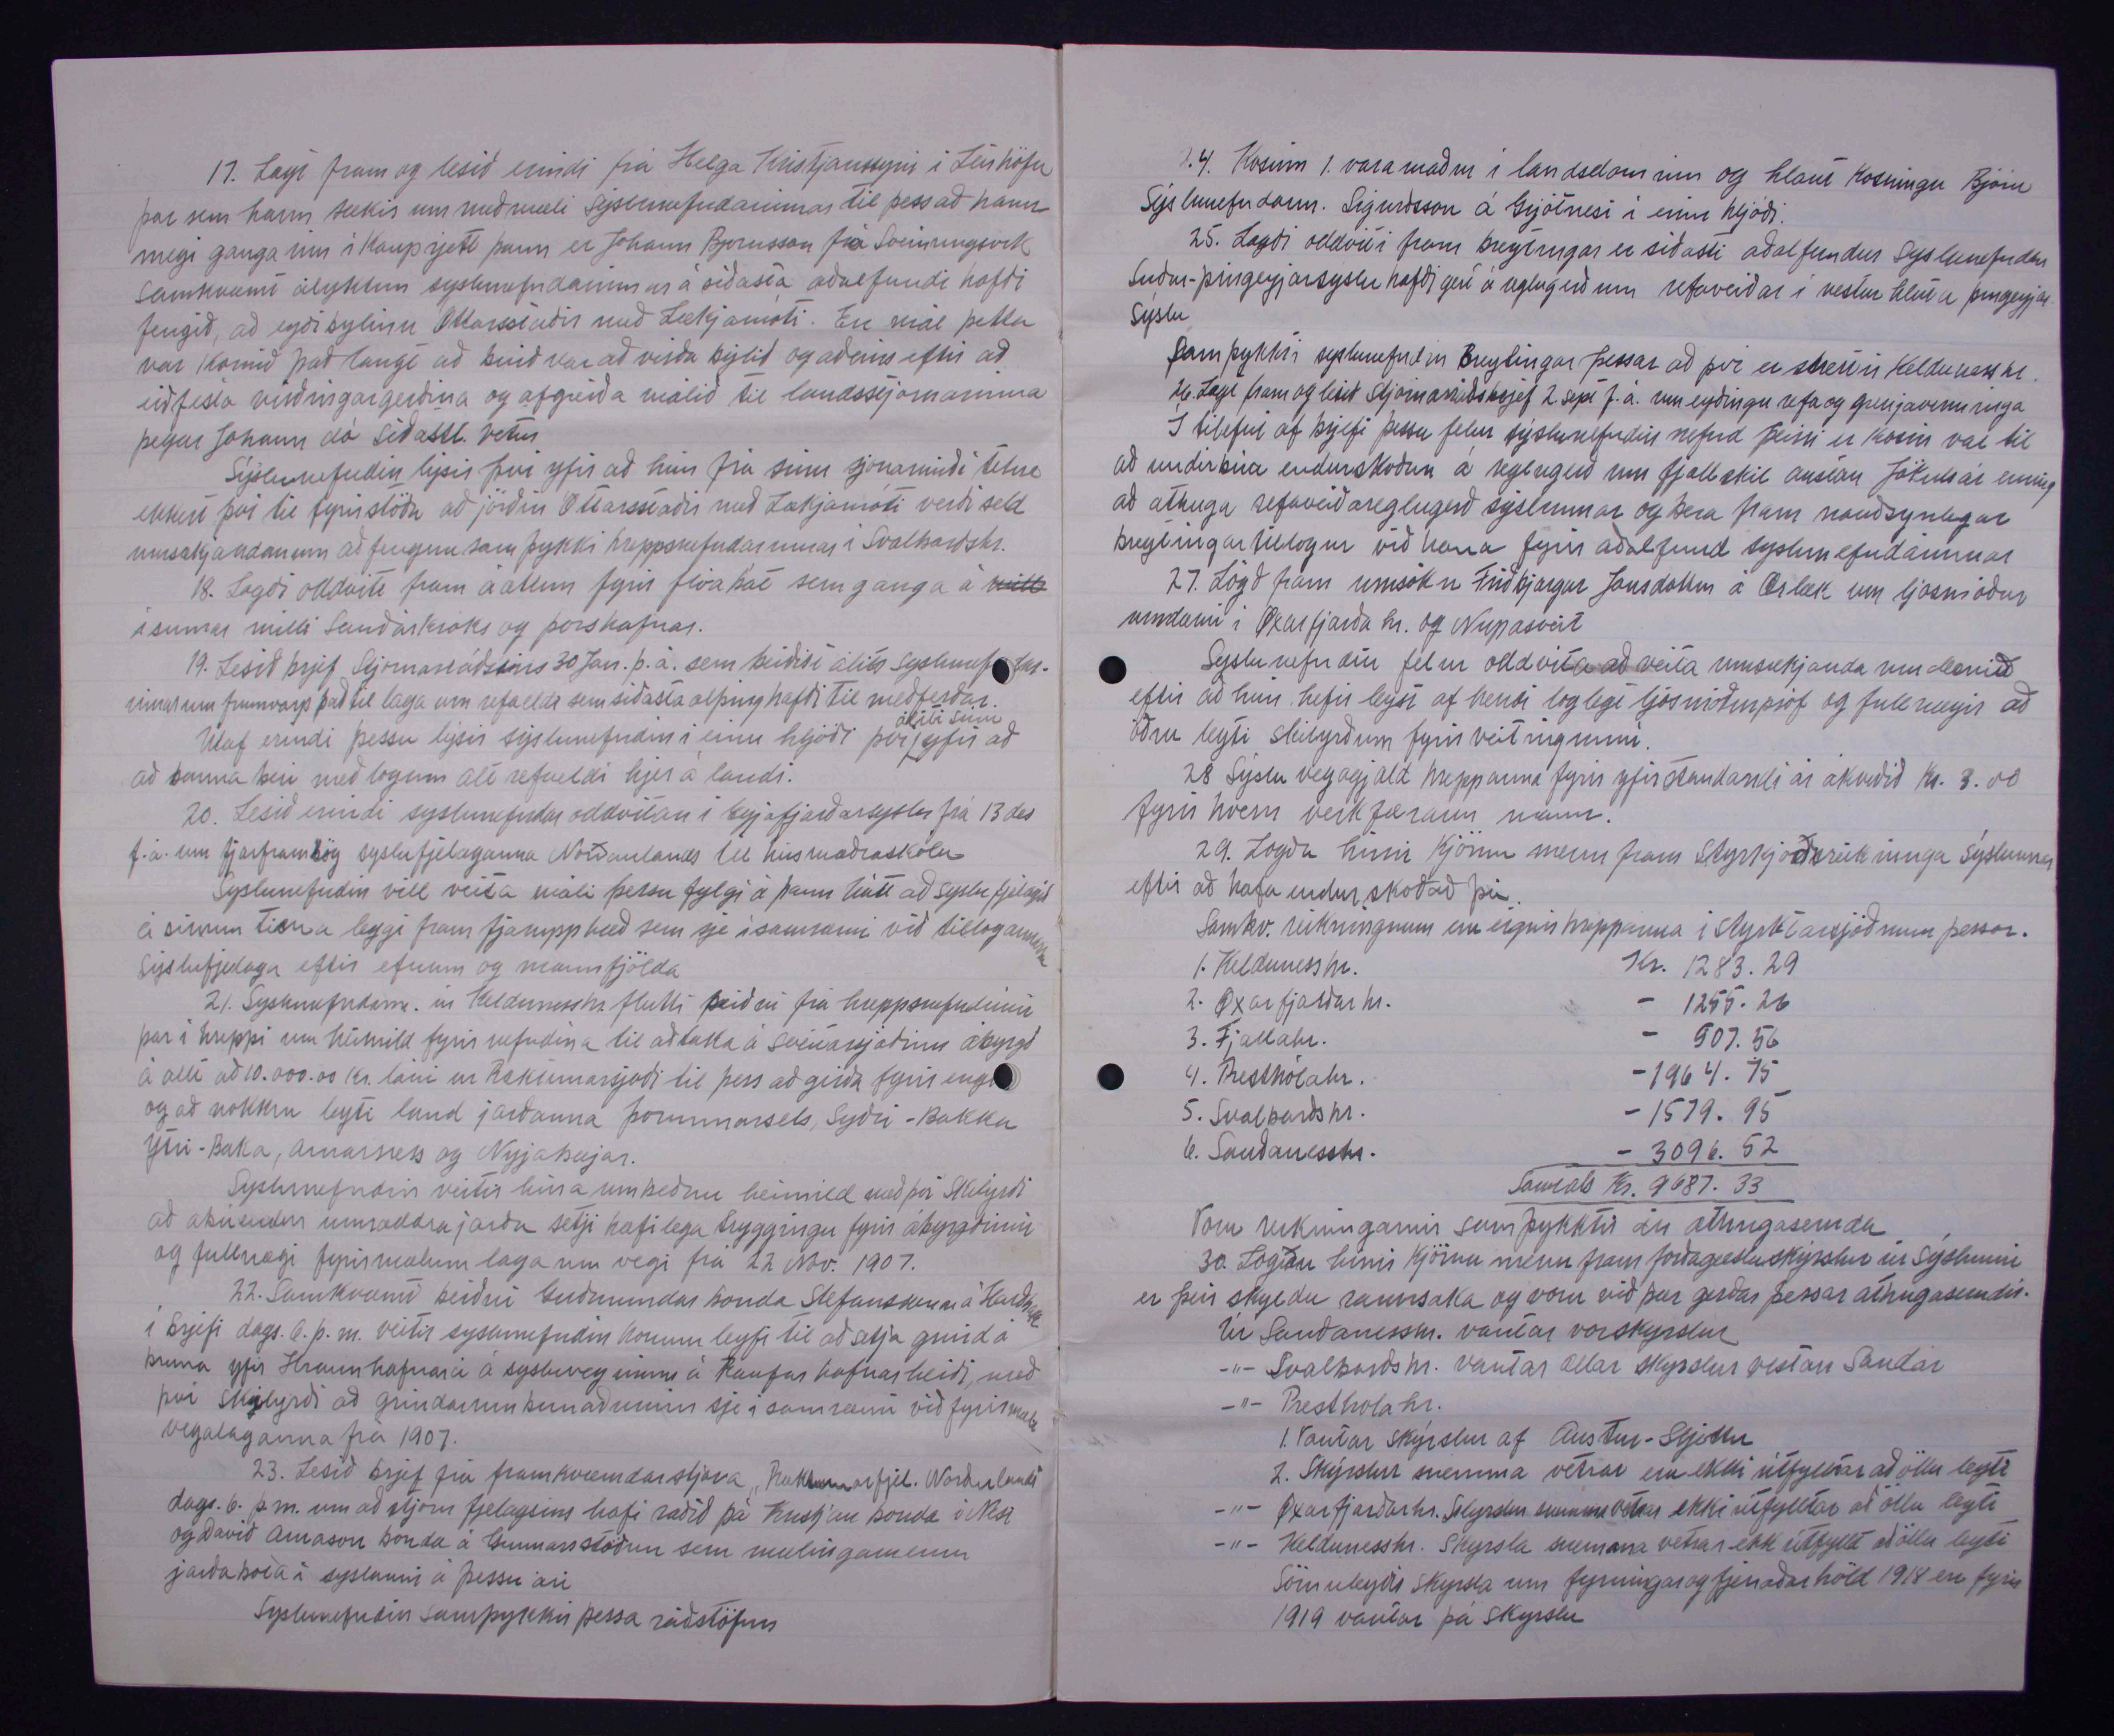 17. Lagt fram og lesið erindi frá Helga Kristjanssyni i Leirhöfn
þar sem hann sækir um meðmæli Sýslunefndarinnar til þess að hann
megi ganga inn i Kauprjett þann er Johann Bjornsson frá Sveinungsvik
samkvæmt ályktun syslunefndarinnar á siðasta aðalfundi hafði
fengið, að eyðibylinu Ottarsstaðir með Lækjamóti. En mál þetta
var komið það langt að buið var að virða býlið og aðeins eftir að
eiðfesta virðingargerðina og afgreiða málið til landsstjornarinna
þegar Johann dó siðastl. vetur
Sýslunefndin lýsir þvi yfir að hun frá sinu sjónarmiði telur
ekkert þvi til fyrirstöðu að jörðin Ottarsstaðir með Lækjamóti verði seld
umsækjandanum að fengnu samþykki hreppsnefndarinnar i Svalbarðshr.
18. Lagði oddviti fram áætlun fyrir flóabát sem ganga á
i sumar milli Sauðárkroks og þorshafnar.
19. Lesið brjef Stjornarráðsins 30 Jan. þ.á. sem beiðist álits Syslunefndar-
innar um frumvarp það til laga um refaeldi sem siðasta alþing hafði til meðferðar.
Utaf erindi þessu lýsir sýslunefndin i einu hljóði þvi áliti sinu yfir að
að banna beri með logum alt refaeldi hjer á landi.
20. Lesið erindi syslunefndar oddvitans i Eyjafjarðarsyslu frá 13 des
f.á. um fjarframlög syslufjelaganna Norðanlands til húsmæðraskóla
Syslunefndin vill veita máli þessu fylgi á þann hátt að syslufjelagið
á sinum tima leggi fram fjárupphæð sem sje i samræmi við tillog annara
Sýslufjelaga eftir efnum og mannfjölda
21. Syslunefndarm. úr Kelduneshr. flutti beiðni frá hreppsnefndinni
þar i hreppi um heimild fyrir nefndina til að taka á sveitarsjóðinn ábyrgð
á allt að 10.000.00 Kr. láni ur Ræktunarsjoði til þess að girða fyrir engi
og að nokkru leyti land jarðanna þorunnarsels, Syðri-Bakka
Ytri-Baka, Arnarness og Nyjabæjar.
Syslunefndin veitir hina umbeðnu heimild með þvi Skilyrði
að abúendur umræddra jarða setji hæfilega tryggingu fyrir ábyrgðinni
og fullnægi fyrirmælum laga um vegi frá 22 Nov. 1907.
22. Samkvæmt beiðni Guðmundar bonda Stefanssonar á Harðbak
i brjefi dags. 6. þ.m. veitir syslunefndin honum leyfi til að setja grind á
bruna yfir Hraunhafnará á sysluveginum á Raufarhafnarheiði, með
þvi skilyrði að grindarumbunaðurinn sje i samræmi við fyrirmæli
vegalaganna frá 1907.
23. Lesið brjef frá framkvæmdarstjora „Ræktunarfjel. Norðurlands
dags. 6. þ.m. um að stjorn fjelagsins hafi ráðið þá Kristjan bonda i Nesi
og Davið Arnason bonda á Gunnarsstöðum sem mælingamenn
jarðabóta i syslunni á þessu ári
Syslunefndin samþykkir þessa ráðstöfun
24. Kosinn 1. varamaður i landsdominn og hlaut kosningu Björn
Sýslunefndarm. Sigurðsson á Grjótnesi i einu hljóði.
25. Lagði oddviti fram breytingar er siðasti aðalfundur Syslunefndar
Suður-þingeyjarsyslu hafði gert á reglugerð um refaveiðar i vestur hluta þingeyjar
Sýslu
Samþykkir syslunefndin Breytingar þessar að þvi er snertir Kelduneshr.
26. Lagt fram og lesið Stjórnarráðsbrjef 2 Sept f.á. um eyðingu refa og grenjavinninga
I tilefni af brjefi þessu felur sýslunefndin nefnd þeirri er kosin var til
að undirbúa endurskoðun á reglugerð um fjallskil austan Jökulsár einnig
að athuga refaveiðareglugerð sýslunnar og bera fram nauðsynlegar
breytingartillogur við hana fyrir aðalfund syslunefndarinnar
27. Lögð fram umsókn Friðbjargar Jonsdottur á Ærlæk um ljosmóður
umdæmi i Øxarfjarðahr. og Nupasveit
Syslunefndin felur oddvita að veita umsækjanda umdæmið
eftir að hún hefir leyst af hendi loglegt ljósmóðurpróf og fullnægir að
öðru leyti skilyrðum fyrir veitingunni.
28 Syslu vegagjald hreppanna fyrir yfirstandandi ár ákveðið Kr. 3.00
fyrir hvern verkfæran mann.
29. Logðu hinir kjörnu menn fram Styrktarsjóðsreikninga Sýslunnar
eftir að hafa endurskoðað þá.
Samkv. reikningnum eru eignir hreppanna i Styrktarsjóðnum þessar.
1. Keldunesshr. Kr. 1283.29
2. Øxarfjarðarhr. - 1255.26
3. Fjallahr. - 507.56
4. Presthólahr. - 1964.75
5. Svalbarðshr. - 1579.95
6. Sauðanesshr. - 3096.52
Samtals Kr. 9687.33
Voru reikningarnir samþykktir án athugasemda
30. Logðu hinir kjörnu menn fram forðagæsluskýrslur úr Sýslunni
er þeir skyldu rannsaka og voru við þær gerðar þessar athugasemdir.
Ur Sauðanesshr. vantar vorskyrslur
-"- Svalbarðshr. vantar allar skyrslur vestan Sandár
-"- Presthólahr.
1. Vantar skýrslur af Austur-Sljettu
2. Skýrslur snemma vetrar eru ekki útfylltar að öllu leyti
-"- Øxarfjarðarhr. Skyrslur snemma vetrar ekki útfylltar að öllu leyti
-"- Keldunesshr. Skyrsla snemma vetrar ekk útfyllt að öllu leyti
Sömuleyðis skyrsla um fyrningar og fjenaðarhöld 1918 en fyrir
1919 vantar þá skyrslu